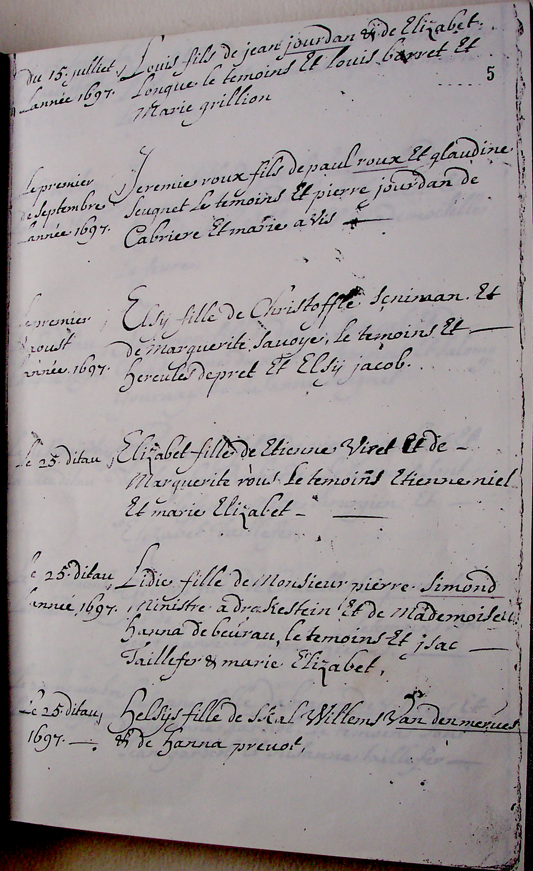 du 15 juilliet, Louis fils de jean jourdan & de Elizabet
L'année 1697. Longue le temoins Et louis barret Et
Marie grillion
5
Le premier Jeremie roux fils de paul roux Et glaudine
de Septembre Seugnet Le temoins Et pierre jourdan de
L'année 1697. Cabriere Et marie avis
Le premier Elsy fille de Christoffle Seniman. Et
aoust de Marguerite Savoye, le temoins Et
année 1697. hercules depret Et Elsy jacob.
Le 25 ditau, Elizabet fille de Etienne Viret Et de
Marguerite rous. Le temoins Etienne niel
Et marie Elizabet
Le 25 ditau Lidie fille de Monsieur pierre Simond
L'année 1697. Ministre a drakestein Et de Mademoiselle
hanna de beurau, le temoins Et jsac
Taillefer & marie Elizabet,
Le 25 ditau, helsys fille de Skal Willems Van den merwes
1697. & de hanna prevot,